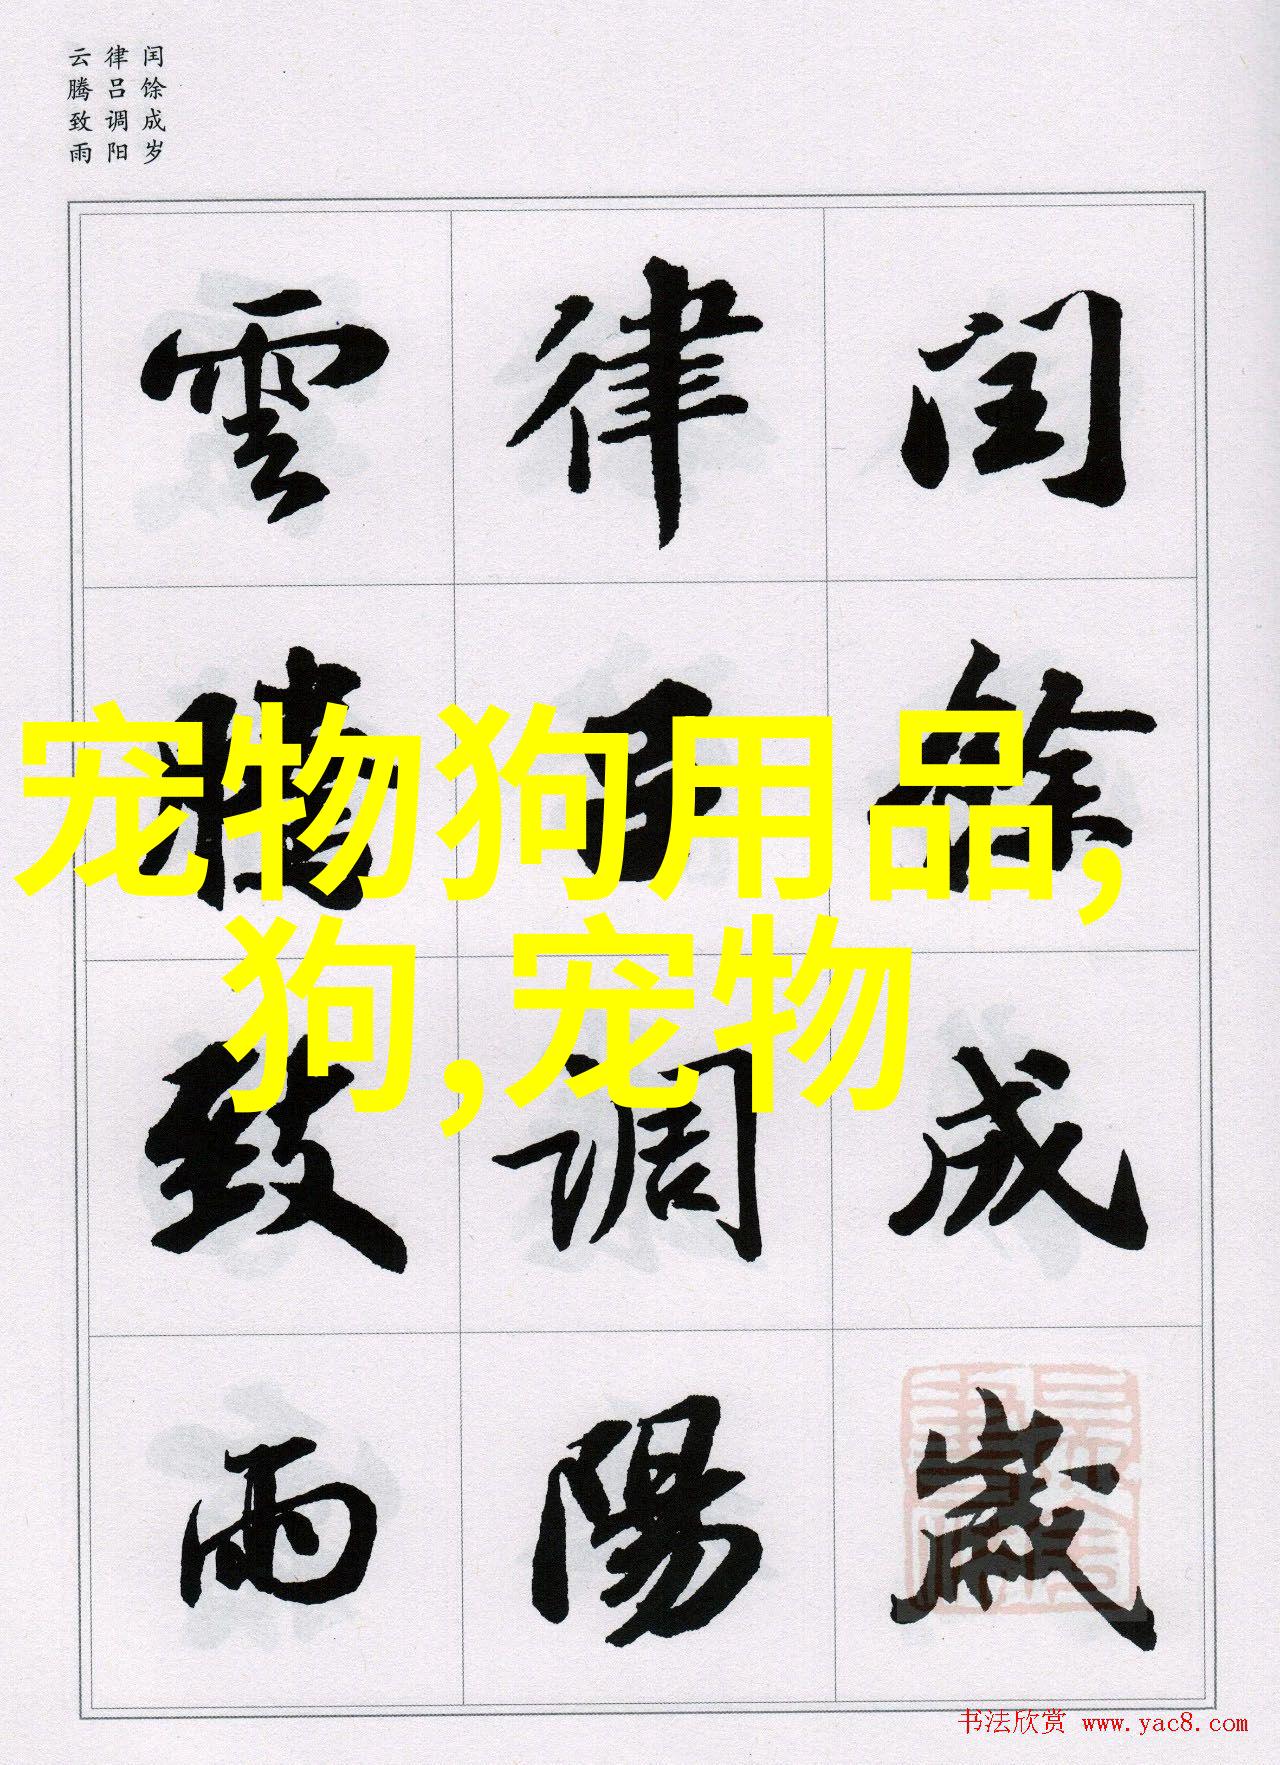 闰馀成岁
律吕调阳
云腾致雨
闰馀成歲
律吕調陽
雲騰致雨
宠物狗用品,
狗,宠物
书法欣赏 www.yac8.com